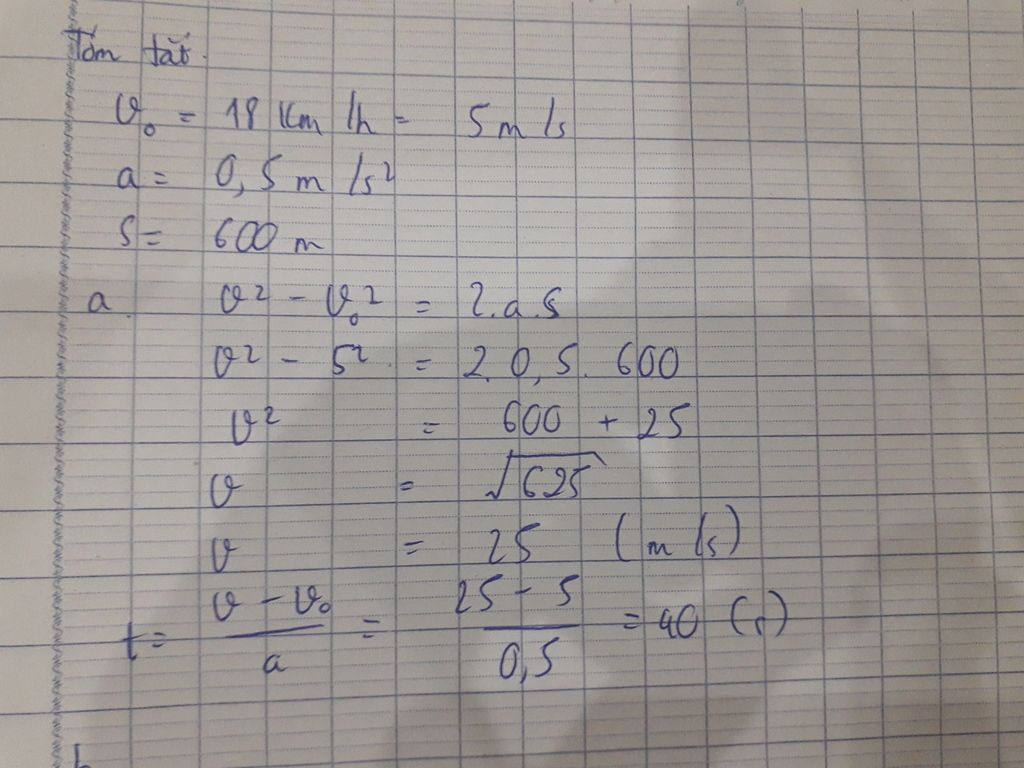 Tóm tắt.
v₀ = 18 Km/h = 5 m/s
a = 0,5 m/s²
S = 600 m
a. v² - v₀² = 2.a.S
v² - 5² = 2.0,5.600
v² = 600 + 25
v = √625
v = 25 (m/s)
t = (v - v₀)/a = (25 - 5)/0,5 = 40 (s)